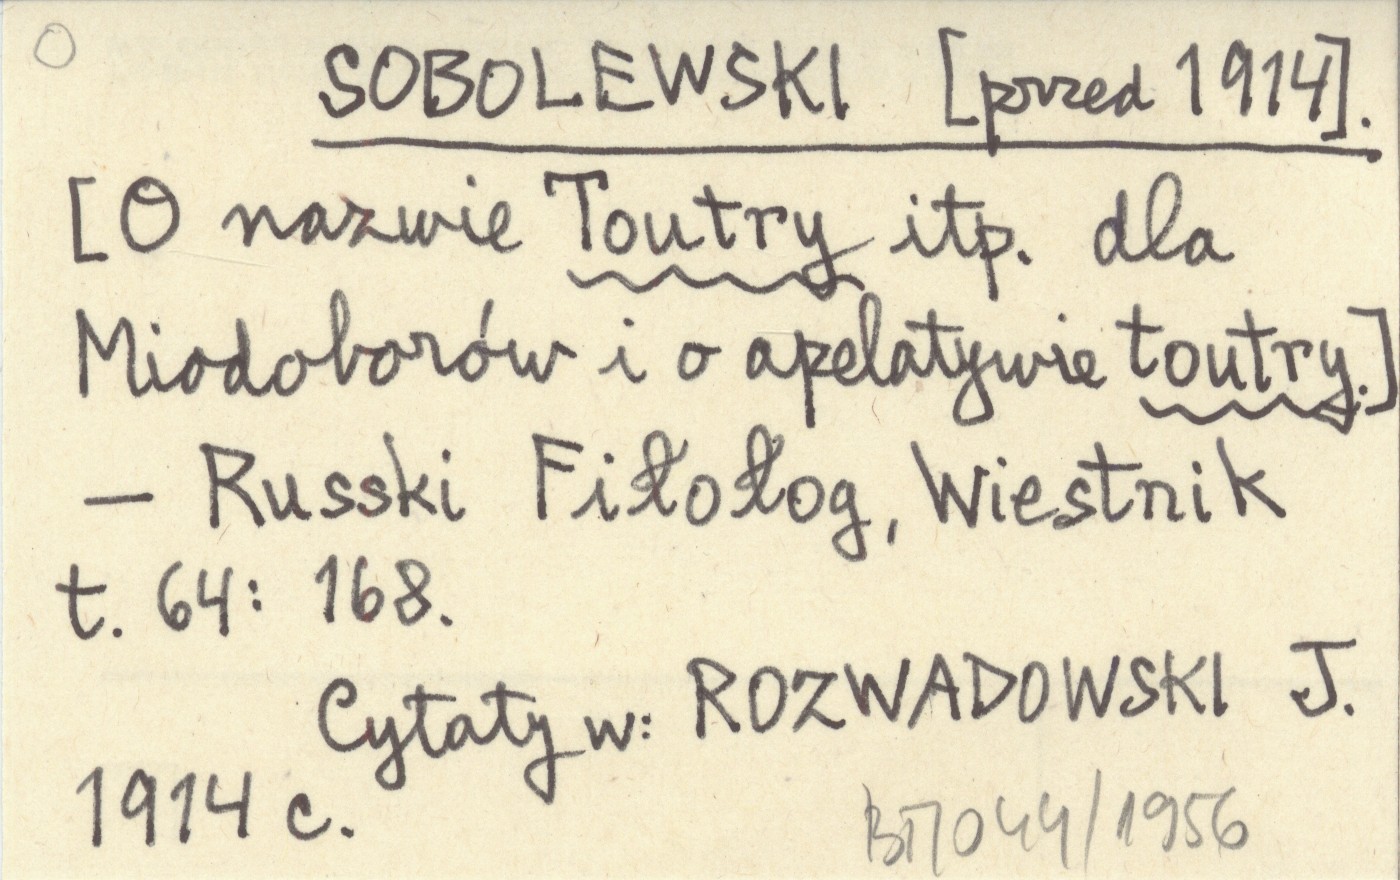 SOBOLEWSKI [przed 1914].
[O nazwie Toutry itp. dla
Miodoborów i o apelatywie toutry.]
— Russki Fiłołog, Wiestnik
t. 64: 168.
Cytaty w: ROZWADOWSKI J.
1914 c.
/1956